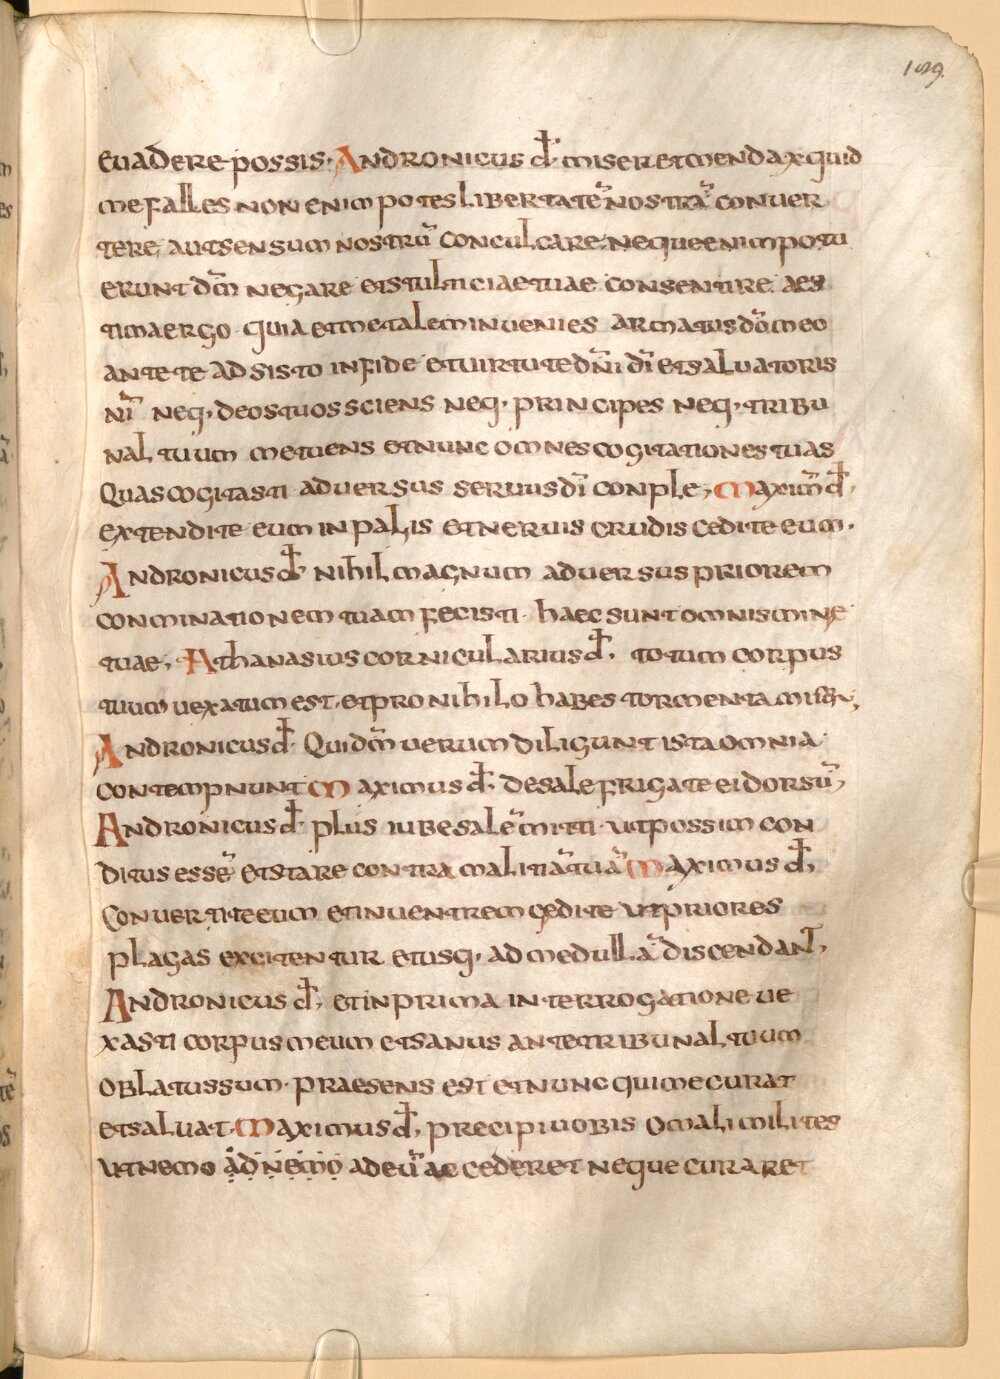 189.
euadere possis · Andronicus đ· miser et mendax quid
me falles non enim potes libertatē nostrā conuer
tere aut sensum nostrū conculcare · neque enim potu
erunt dm̄ negare et stulticiae tuae consentire · aes
tima ergo quia et me talem inuenies armatus dō meo
ante te adsisto in fide et uirtute dn̄i dī et saluatoris
nī neq· deos tuos sciens neq· principes neq· tribu
nal tuum metuens et nunc omnes cogitationes tuas
quas cogitasti aduersus seruus dī conple, maxim̄ đ·
extendite eum in palis et neruis crudis cedite eum·
Andronicus đ· nihil magnum aduersus priorem
conminationem tuam fecisti · haec sunt omnis mine
tuae, Athanasius cornicularius đ· totum corpus
tuum uexatum est · et pro nihilo habes tormenta miser,
Andronicus đ· Qui dm̄ uerum diligunt ista omnia
contempnunt maximus đ· de sale frigate ei dorsū,
Andronicus đ· plus iube salē mitti · ut possim con
ditus essē et stare contra malitiā tuā maximus đ,
Conuertite eum et in uentrem cędite ut priores
plagas excitentur et usq· ad medullā discendant,
Andronicus đ, et in prima interrogatione ue
xasti corpus meum et sanus ante tribunal tuum
oblatus sum · praesens est et nunc qui me curat
et saluat · Maximus đ, precipi uobis o mali milites
ut nemo ad nemo ad eū accederet neque curaret